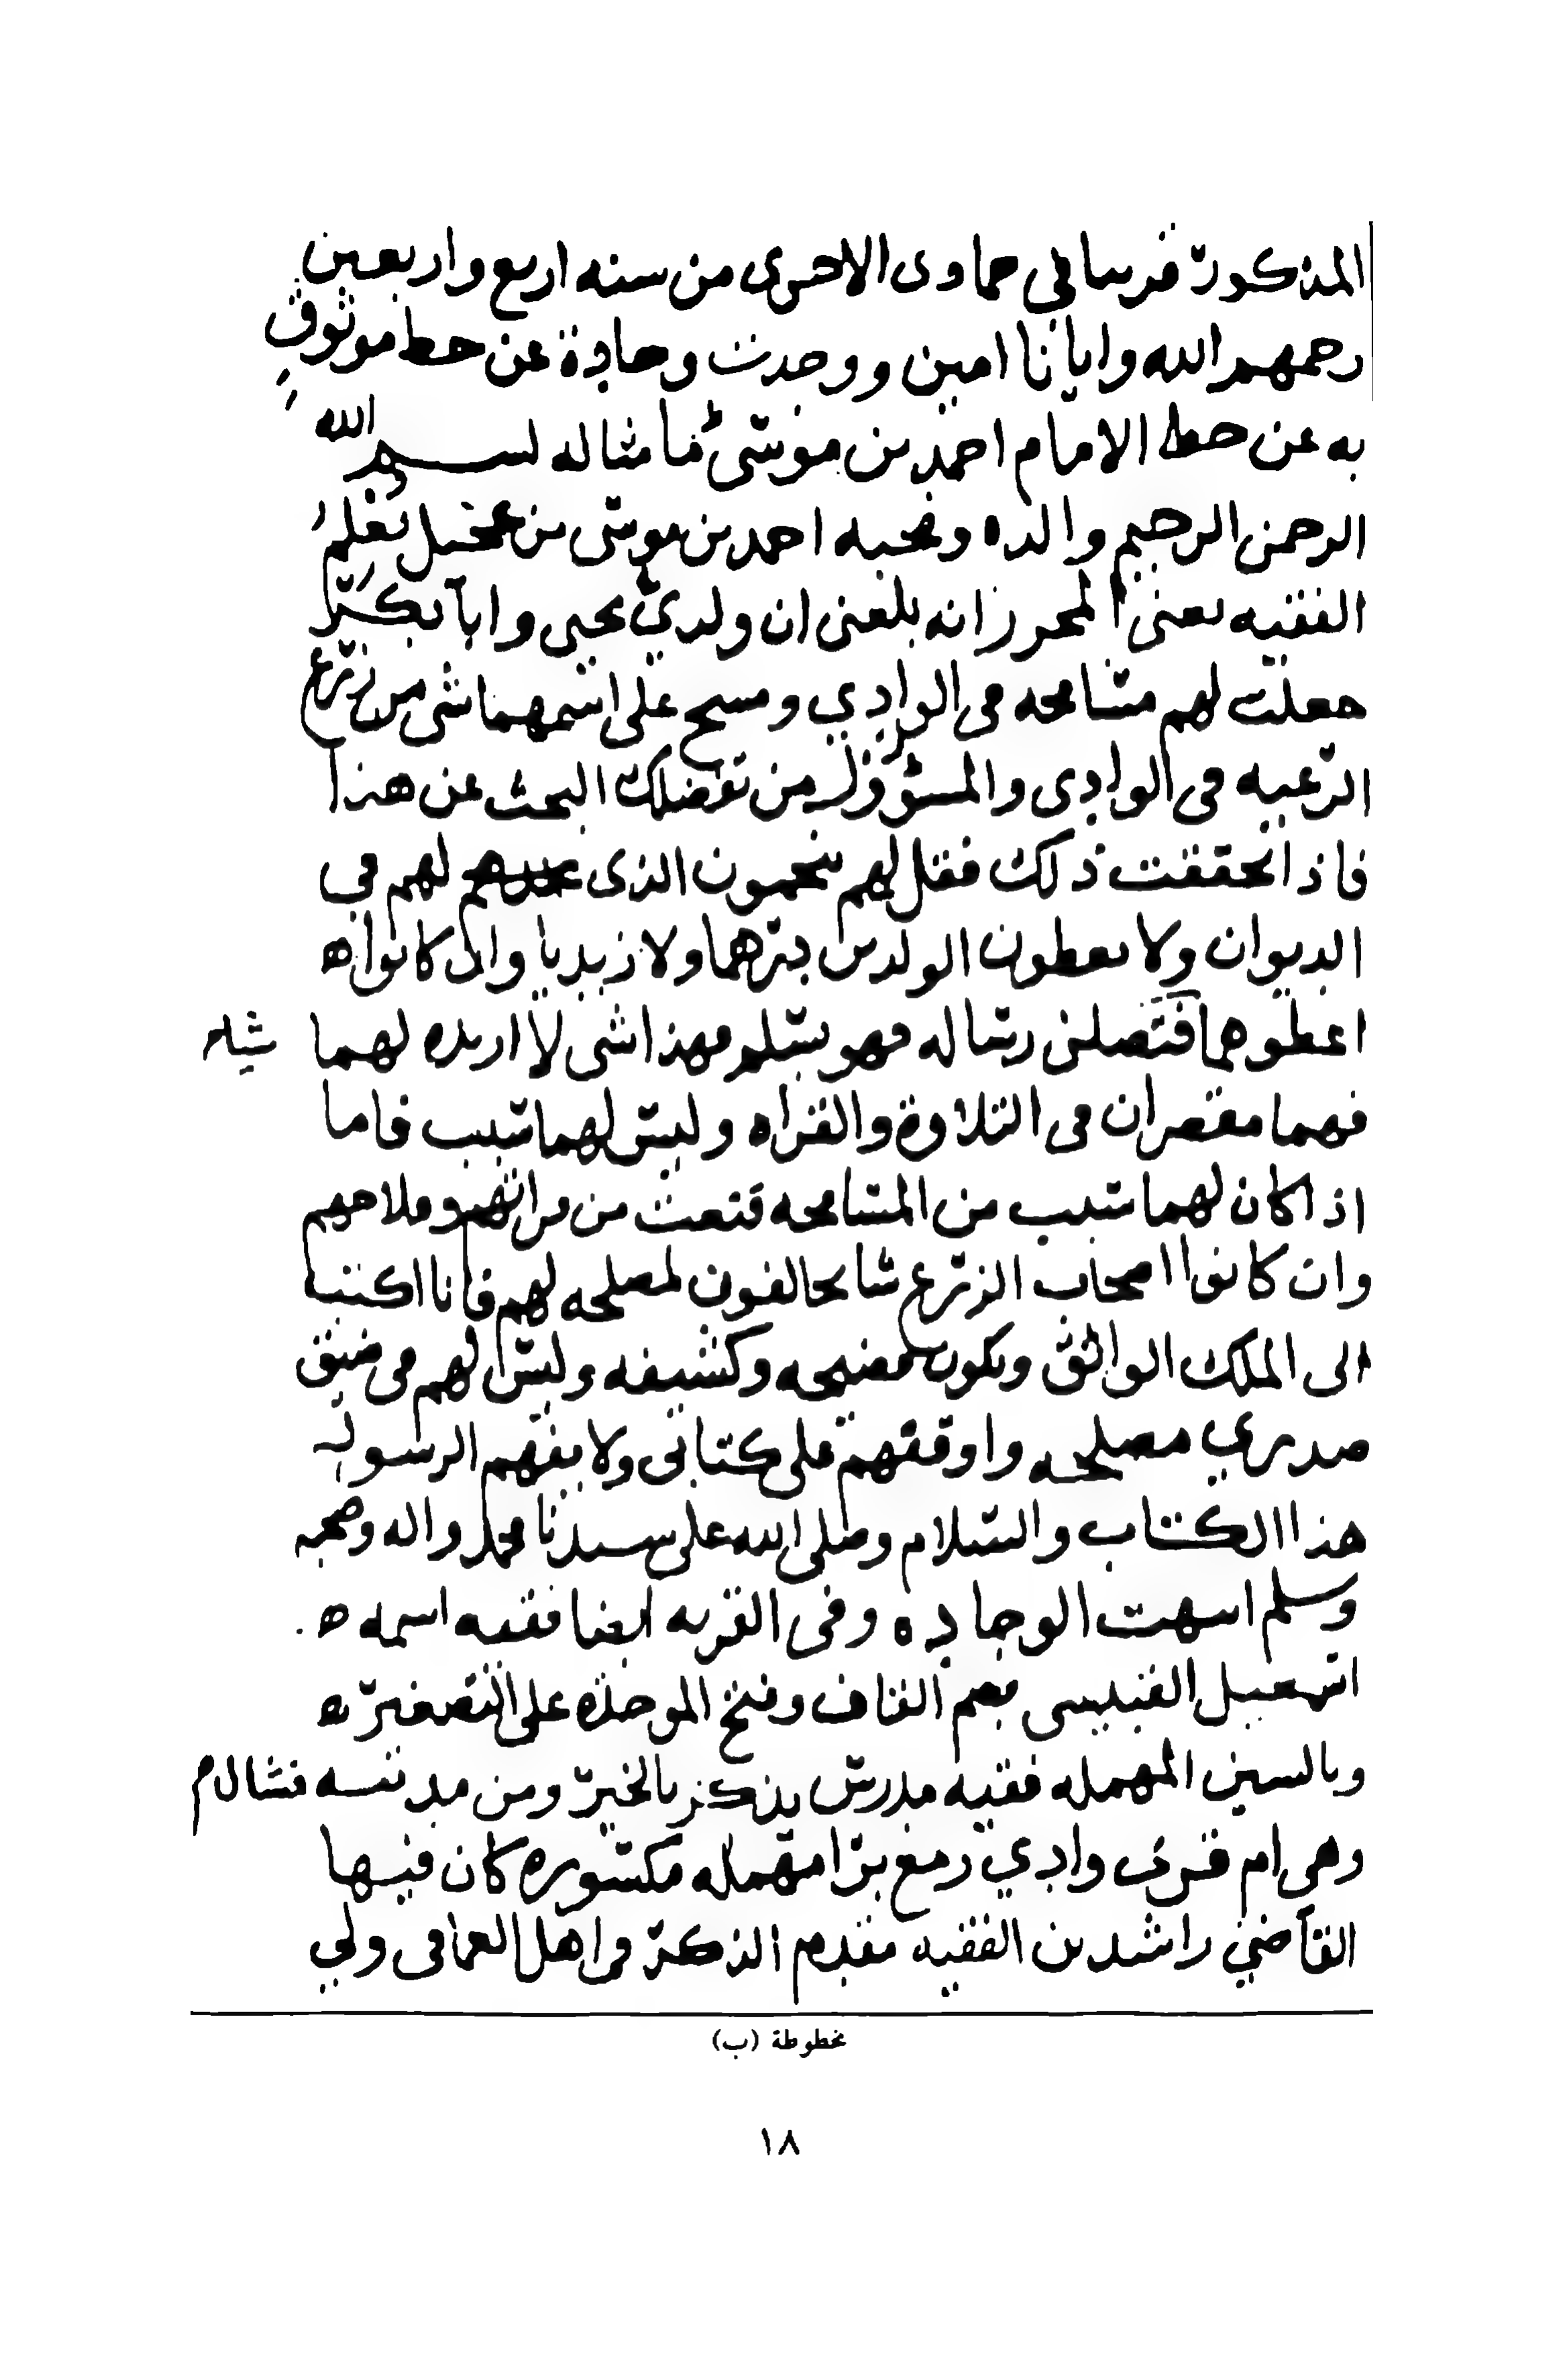 المذكورة قريبا في جمادى الاخرى من سنه اربع واربعين
رحمهم الله وايانا امين ووجدت وجادة عن خط موثوق
به عن خط الامام احمد بن موسى ما مثاله بسم الله
الرحمن الرحيم والده ومحبه احمد بن موسى بن عجيل يعلم
الفقيه يعنى المحرز انه بلغنى ان ولدي يحيى وابا بكر
جعلت لهم مسامحه فى الوادي ومسح على اسمهما شى من زرع
الرعيه فى الوادى والمسؤول من تفضلك البحث عن هذا
فاذا تحققت ذلك فقل لهم يمحون الذى لهم في
الديوان ولا يعطون الولدين درهما ولا زبديا وان كانوا
اعطوهما فتصلنى رساله فهو يسلم فهذا شى لا اريده لهما
فهما مقصران فى التلاوة والقراه وليس لهما سبب فاما
اذا كان لهما سبب من المسامحه تعبت من مراتهم وملاحهم
وان كانوا اصحاب الزرع يخالفون لمصلحه لهم فانا اكتب
الى الملك الواثق ويكون فضيحه وكشيفه وليس لهم فى ضيق
صدري مصلحه واوقفهم على كتابى ولا يفهم الرسول
هذا الكتاب والسلام وصلى الله على سيدنا محمد واله وصحبه
وسلم انتهت الوجاده وفى القريه ايضا فقيه اسمه
اسمعيل القبيسى بضم القاف وفتح الموحده على التصغير
وبالسين المهمله فقيه مدرس يذكر بالخير ومن مدنه فشال
وهى ام قرى وادي رمع برا مهمله مكسوره كان فيها
القاضي راشد بن الفقيه مقدم الذكر واهل العمافى ولي
مخطوطة (ب)
١٨